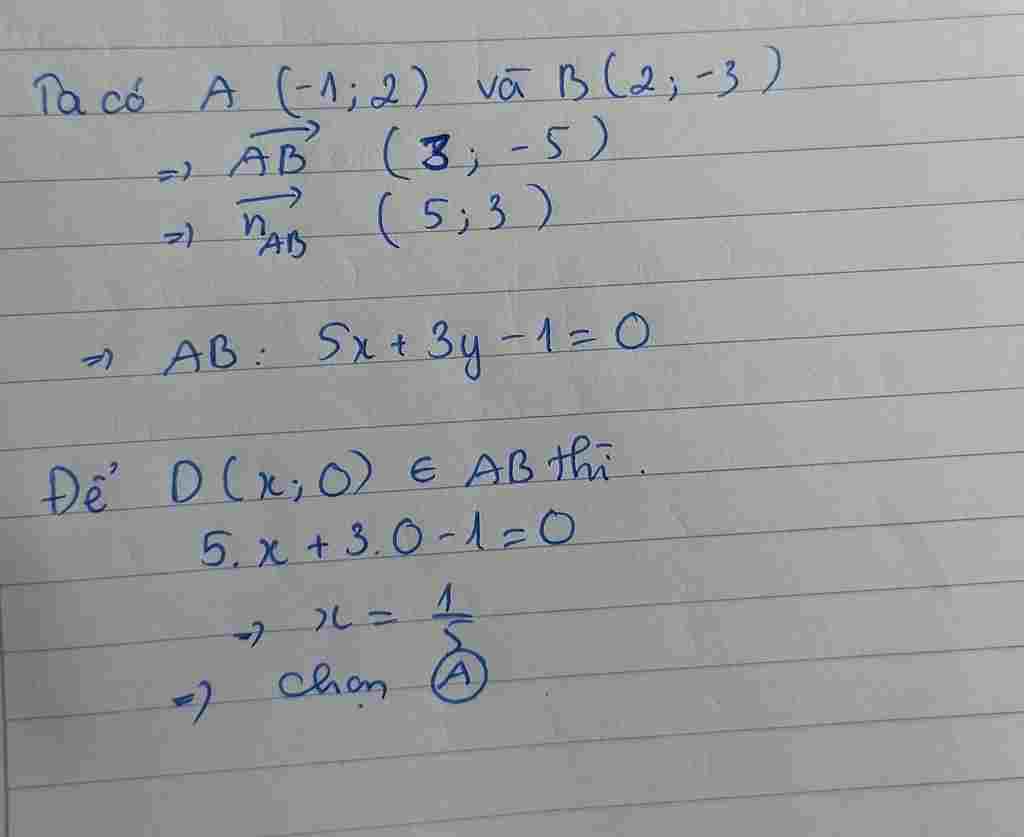 Ta có A (-1; 2) và B (2; -3)
=> \overrightarrow{AB} (3; -5)
=> \overrightarrow{n_{AB}} (5; 3)
=> AB: 5x + 3y - 1 = 0
Để D (x; 0) ∈ AB thì.
5.x + 3.0 - 1 = 0
=> x = \frac{1}{5}
=> chọn Ⓐ